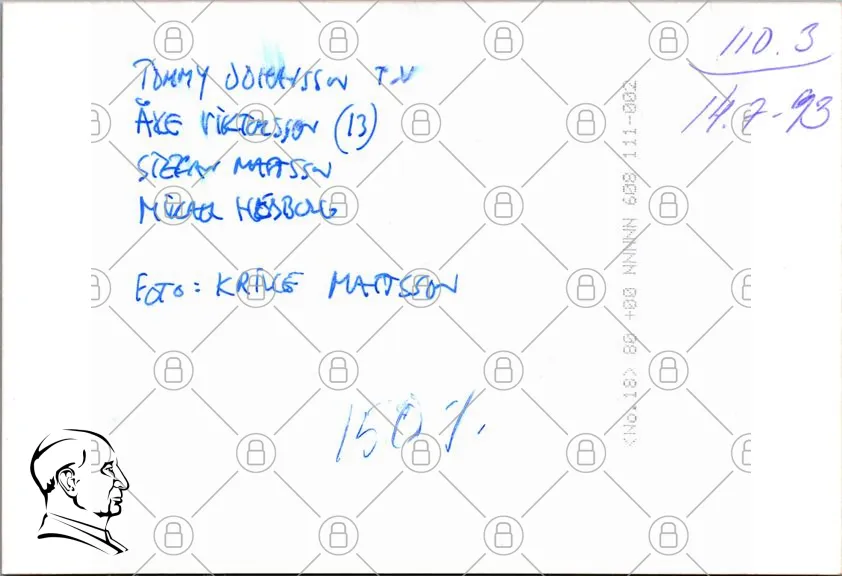 TOMMY JOHANSSON T.V
ÅKE VIKTORSSON (13)
STEFAN MATTSSON
MIKAEL HEDBORG
FOTO: KRILLE MATTSSON
150 %.
110.3
14.7-93
<No.18> 80 +00 NNNNN 608 111-002